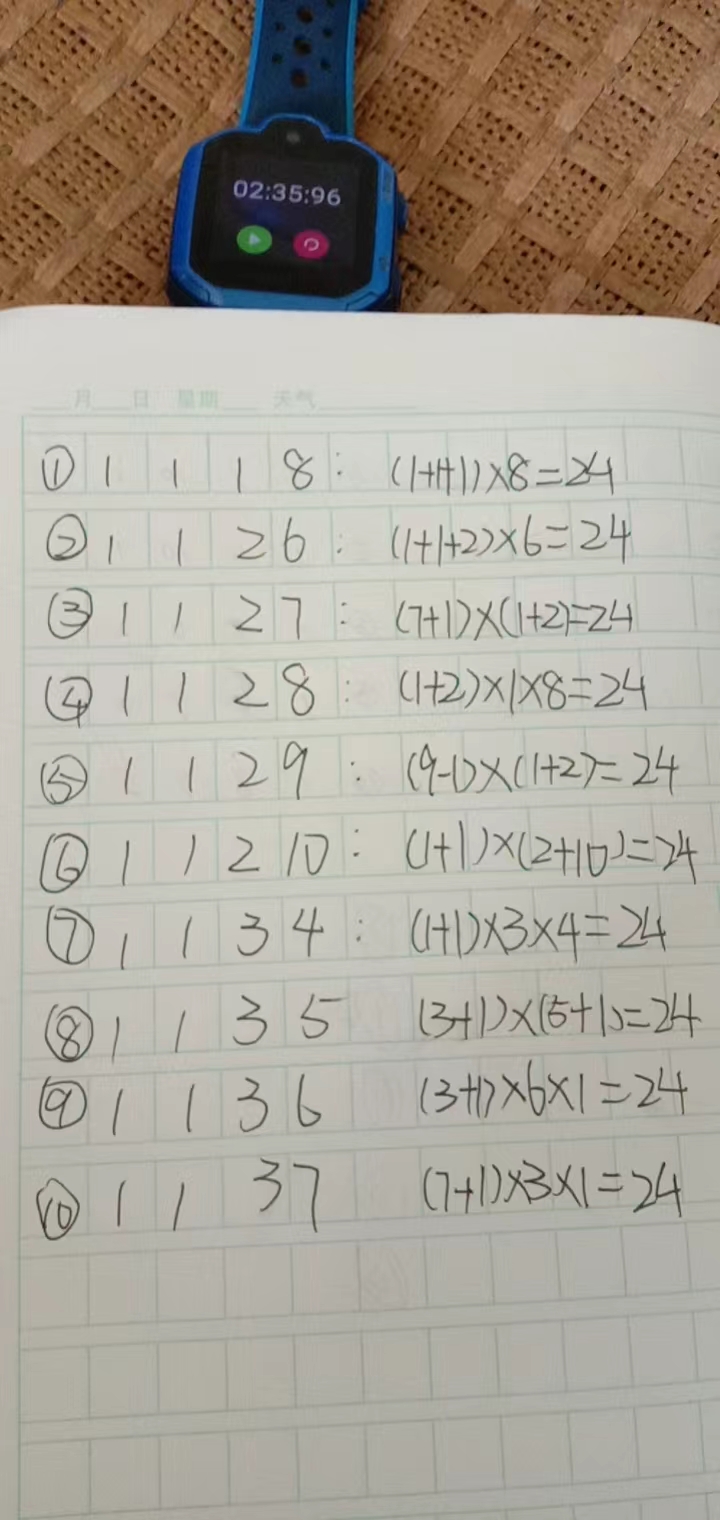 02:35:96
月 日 星期 天气
① 1 1 1 8 : (1+1+1)×8=24
② 1 1 2 6 : (1+1+2)×6=24
③ 1 1 2 7 : (7+1)×(1+2)=24
④ 1 1 2 8 : (1+2)×1×8=24
⑤ 1 1 2 9 : (9-1)×(1+2)=24
⑥ 1 1 2 10 : (1+1)×(2+10)=24
⑦ 1 1 3 4 : (1+1)×3×4=24
⑧ 1 1 3 5 (3+1)×(5+1)=24
⑨ 1 1 3 6 (3+1)×6×1=24
⑩ 1 1 3 7 (7+1)×3×1=24